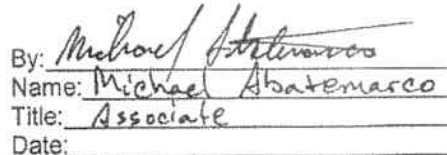 By: Michael Abatemarco
Name: Michael Abatemarco
Title: Associate
Date: